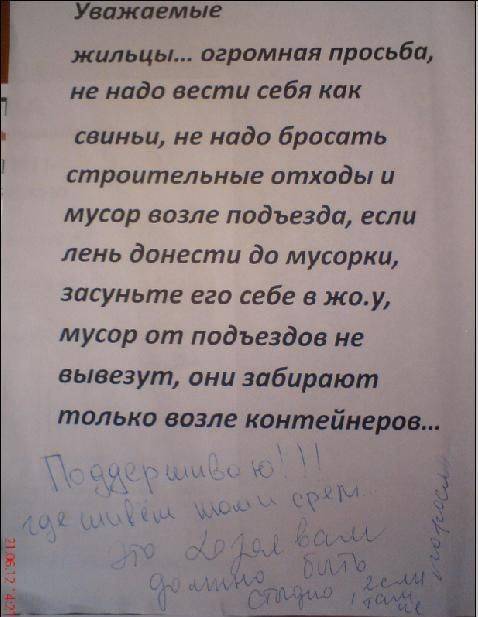 Уважаемые
жильцы... огромная просьба,
не надо вести себя как
свиньи, не надо бросать
строительные отходы и
мусор возле подъезда, если
лень донести до мусорки,
засуньте его себе в жо.у,
мусор от подъездов не
вывезут, они забирают
только возле контейнеров...
Поддерживаю!!!
где живём там и срём..
это вам
должно быть
стыдно, если
там не